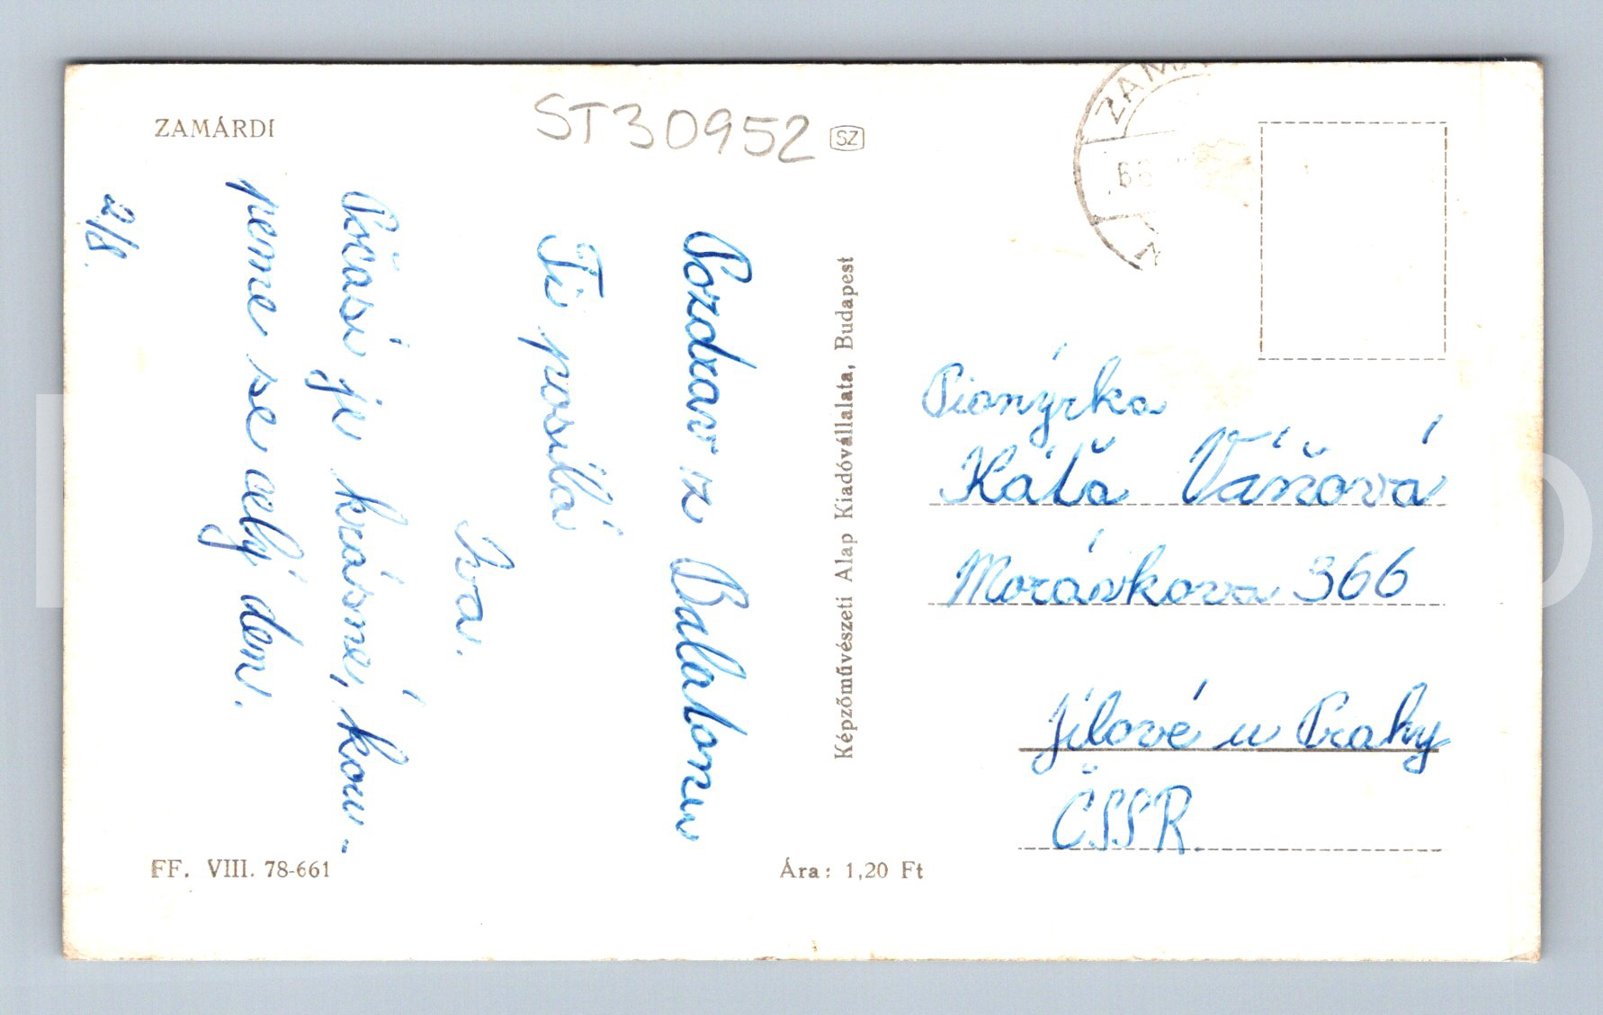 ZAMÁRDI
ST30952
SZ
ZAMÁ
Pozdrav z Balatonu
Ti posílá
Iva.
Počasí je krásné, kou-
peme se celý den.
2/8.
Képzőművészeti Alap Kiadóvállalata, Budapest
Pionýrka
Káťa Váňová
Morávkova 366
Jílové u Prahy
ČSSR.
FF. VIII. 78-661
Ára: 1,20 Ft